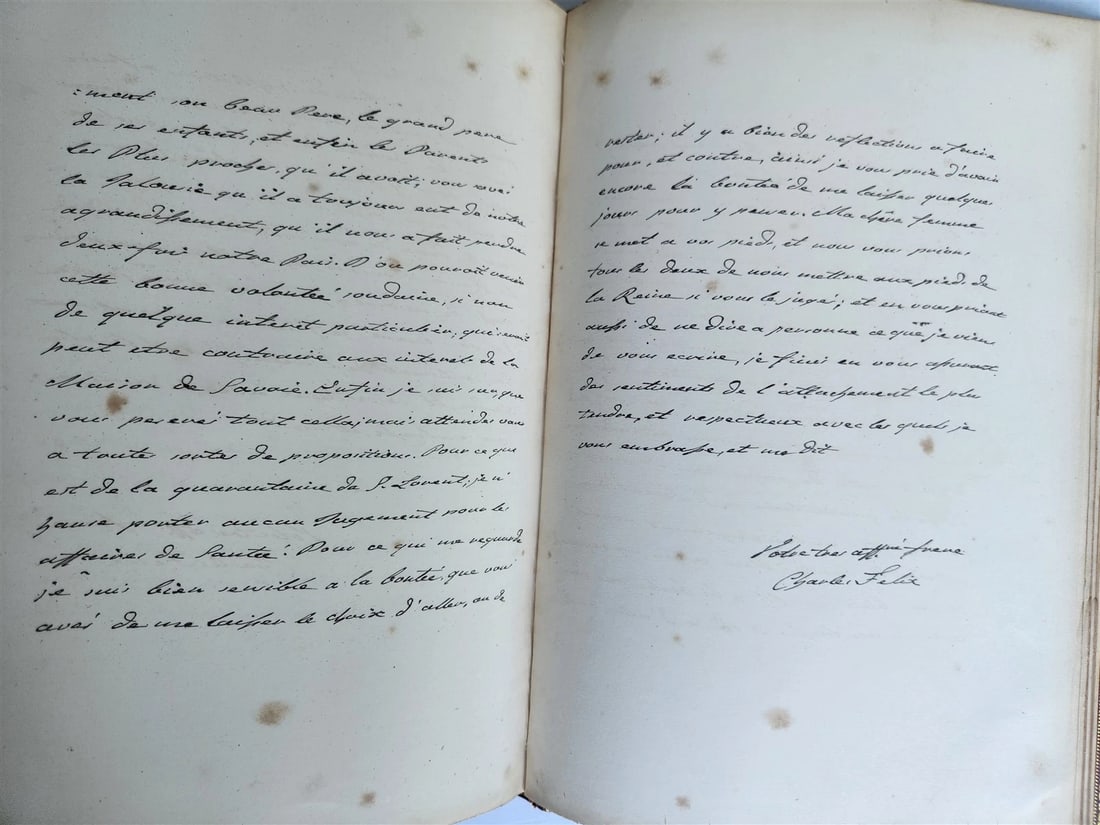 :ment son beau Pere, le grand pere
de ses enfants, et enfin les Parents
les Plus proches, qu'il avoit; vous savés
la Jalousie qu'il a toujours eut de notre
agrandissement, qu'il nous a fait perdre
deux-fois notre Païs. D'ou pouvoit venir
cette bonne volonteé soudaine, si non
de quelque interet particulier, qui seroit
peut etre contraire aux interets de la
Maison de Savoie. Enfin je suis sur, que
vous peserés tout cella, mais attendés vous
a toute sortes de propositions. Pour ce que
est de la quarantaine de S. Lorent; je n'
hause porter aucun Jugement pour les
affaires de Santeé. Pour ce qui me regarde
je suis bien sensible a la bonteé, que vous
avés de me laisser le choix d'aller, ou de
rester; il y a bien des reflections a faire
pour, et contre, ainsi je vous prie d'avoir
encore la bonteé de me laisser quelques
jours pour y penser. Ma chère femme
se met a vos pieds, et nous vous prions
tous les deux de nous mettre aux pieds de
la Reine si vous le jugé; et en vous priant
aussi de ne dire a personne ce que je viens
de vous ecrire, je finis en vous assurant
des sentiments de l'attachement le plus
tendre, et respectueux avec les quels je
vous embrasse, et me dit
Votre tres affné frere
Charles Felix